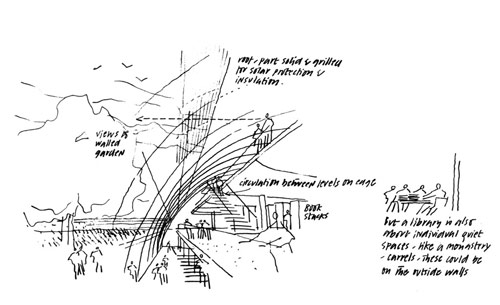 roof - part solid & grilled
for solar protection &
insulation.
views of
walled
garden
circulation between levels on edge
BOOK
STACKS
but a library is also
about individual quiet
spaces - like a monastry
- carrels - these could be
on the outside walls